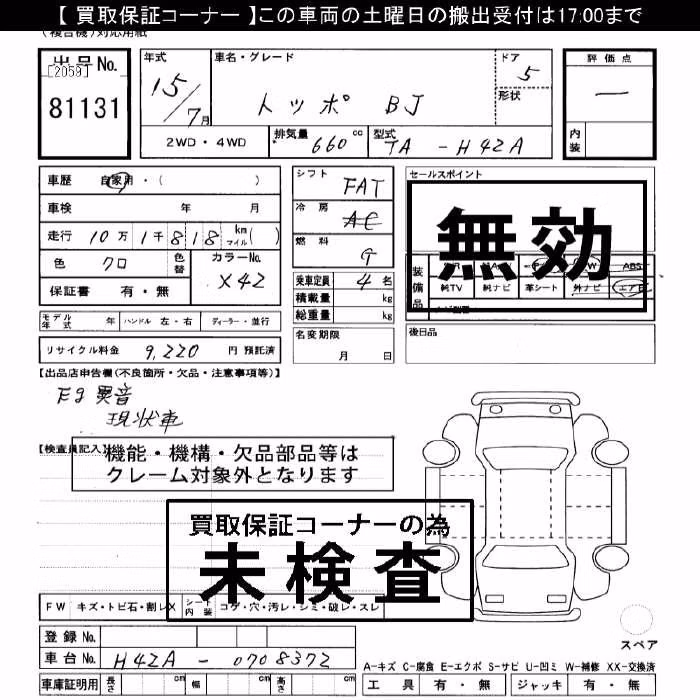 【 買取保証コーナー 】この車両の土曜日の搬出受付は17:00まで
(複合機)対応用紙
出品No.
[2059]
81131
年式
15/7月
車名・グレード
トッポ BJ
ドア
5
形状
評価点
—
内装
2WD・4WD
排気量 660 cc
型式 TA - H42A
車歴 自家用・( )
車検 年 月
走行 10万1千818 km マイル( )
色 クロ 色替
カラーNo. X42
保証書 有・無
シフト FAT
冷房 AC
燃料 G
乗車定員 4名
積載量 kg
総重量 kg
名変期限
月 日
セールスポイント
無効
装備品
ABS
純TV 純ナビ 革シート 外ナビ エアB
後日品
モデル年式 年 ハンドル 左・右 ディーラー・並行
リサイクル料金 9,220 円 預託済
【出品店申告欄(不良箇所・欠品・注意事項等)】
Eg 異音
現状車
【検査員記入】
機能・機構・欠品部品等は
クレーム対象外となります
買取保証コーナーの為
未検査
FW キズ・トビ石・割レX シート内装 コゲ・穴・汚レ・シミ・破レ・スレ
スペア
登録No.
車台No. H42A - 0708372
車庫証明用 長さ cm 幅 cm 高さ cm
A-キズ C-腐食 E-エクボ S-サビ U-凹ミ W-補修 XX-交換済
工具 有・無 ジャッキ 有・無